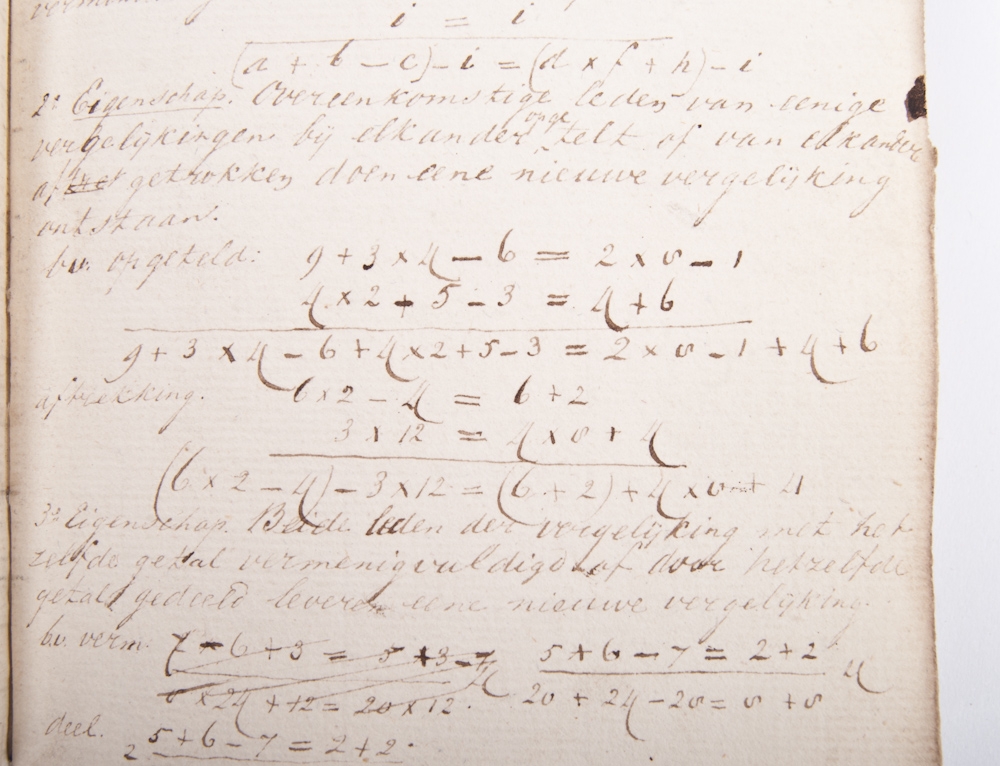 i = i
(a + b - c) - i = (d × f + h) - i
2e Eigenschap. Overeenkomstige leden van eenige
vergelijkingen bij elkander opge telt of van elkander
af getrokken doen eene nieuwe vergelijking
ontstaan.
bv. opgeteld: 9 + 3 × 4 - 6 = 2 × 8 - 1
4 × 2 + 5 - 3 = 4 + 6
9 + 3 × 4 - 6 + 4 × 2 + 5 - 3 = 2 × 8 - 1 + 4 + 6
aftrekking. 6 × 2 - 4 = 6 + 2
3 × 12 = 4 × 8 + 4
(6 × 2 - 4) - 3 × 12 = (6 + 2) + 4 × 8 + 4
3e Eigenschap. Beide leden der vergelijking met het
zelfde getal vermenigvuldigd of door hetzelfde
getal gedeeld leveren eene nieuwe vergelijking.
bv. verm: 7 - 6 + 3 = 5 + 3 - 4 5 + 6 - 7 = 2 + 2 4
8 × 24 + 12 = 20 × 12. 20 + 24 - 28 = 8 + 8
deel.
2 5 + 6 - 7 = 2 + 2.